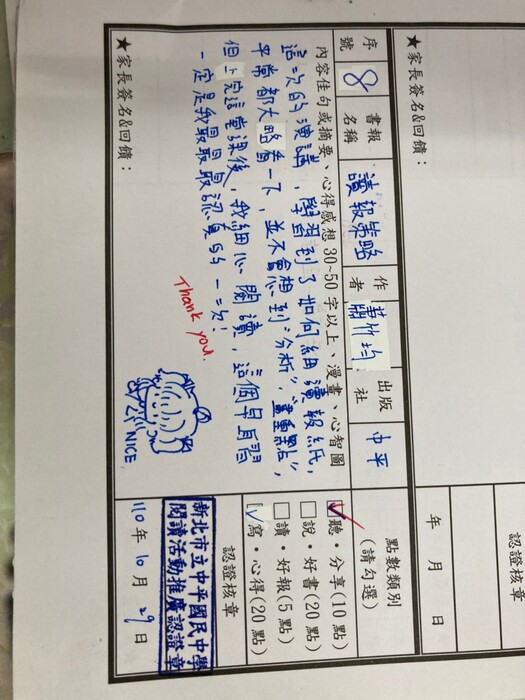 序號
8
書報名稱
讀報策略
作者
蕭竹均
出版社
中平
點數類別
(請勾選)
內容佳句或摘要、心得感想30~50字以上、漫畫、心智圖
這次的演講，學習到了如何細讀報紙，
平常都大略看一下，並不會想到"分析"，"畫重點"，
但上完這堂課後，我細心閱讀，這個早自習
一定是我最最最認真的一次！
Thank you.
NICE
☑聽．分享(10點)
□說．好書(20點)
□讀．好報(5點)
☑寫．心得(20點)
認證核章
新北市立中平國民中學
閱讀活動推廣認證章
110年10月29日
★家長簽名&回饋：
年 月 日
★家長簽名&回饋：